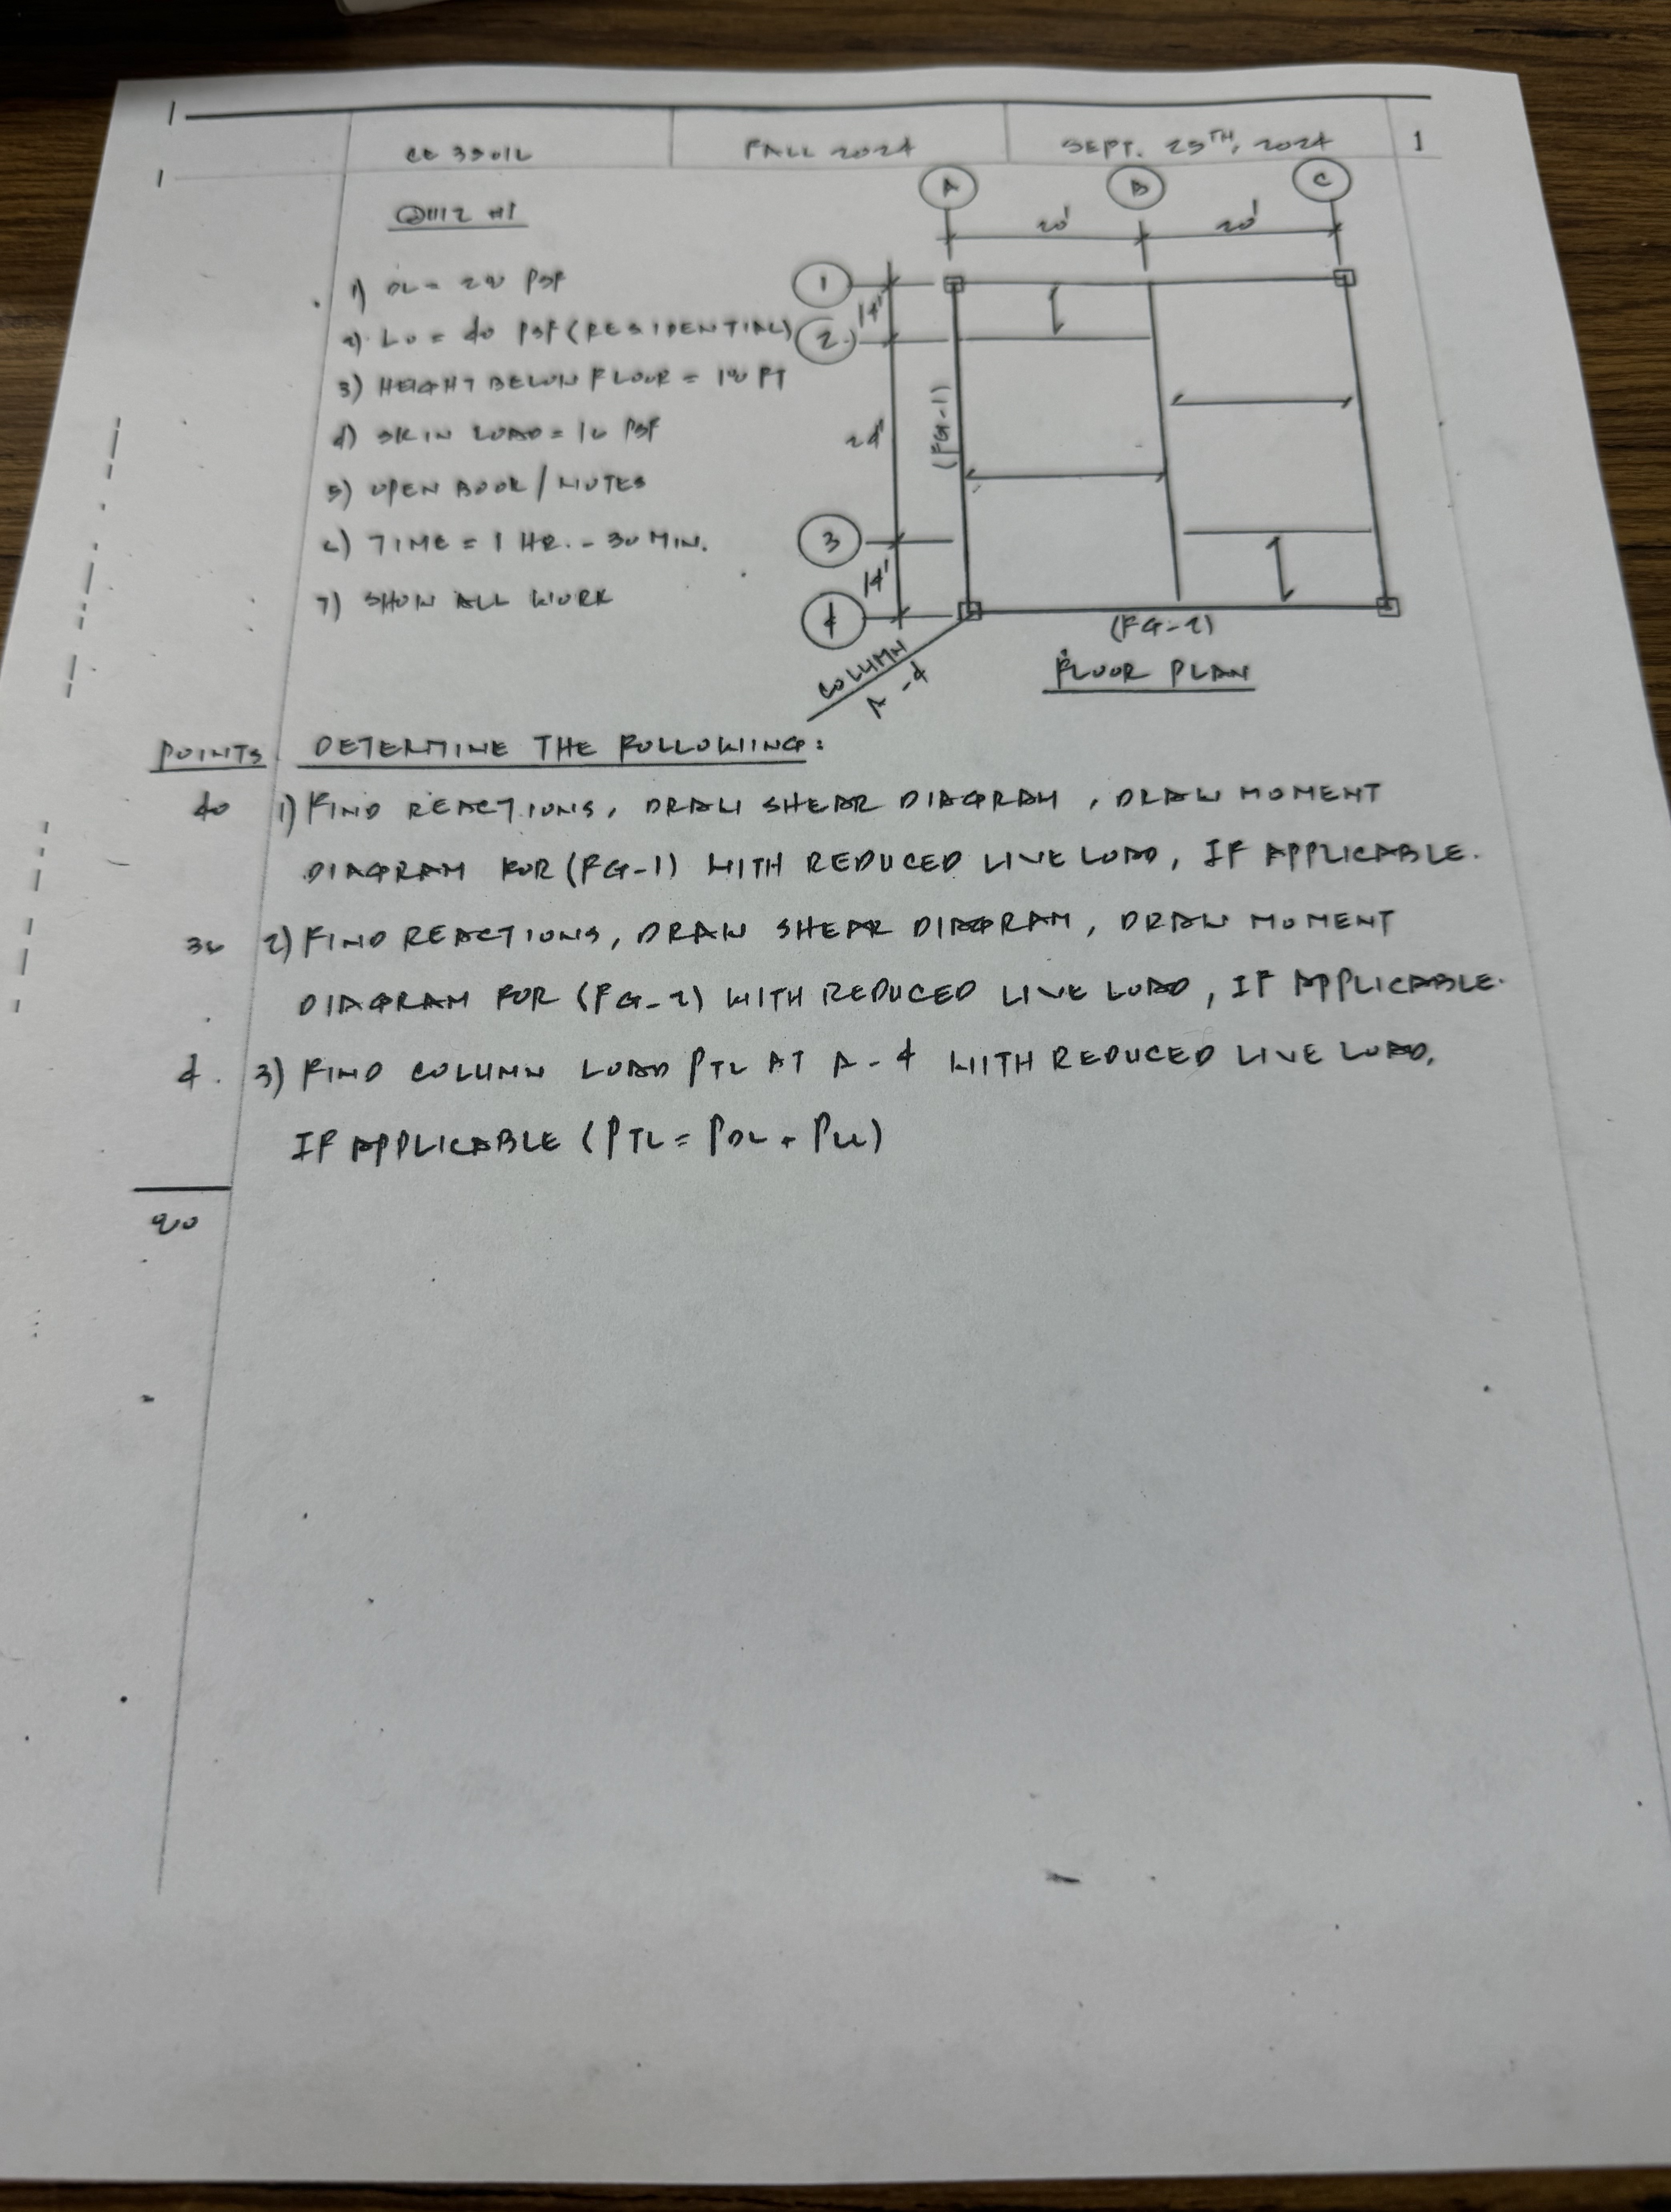 FALL 2024
SEPT. 25TH, 2024
1
A
B
C
QUIZ #1
20'
20'
1)
PSF
1
14'
2) Lo = 40 PSF (RESIDENTIAL)
2
3) HEIGHT BELOW FLOOR = FT
4) SKIN LOAD = PSF
24'
(FG-1)
5) OPEN BOOK / NOTES
6) TIME = 1 HR. - 30 MIN.
3
7) SHOW ALL WORK
14'
4
(FG-2)
COLUMN
A-4
FLOOR PLAN
POINTS
DETERMINE THE FOLLOWING:
40 1) FIND REACTIONS, DRAW SHEAR DIAGRAM, DRAW MOMENT
DIAGRAM FOR (FG-1) WITH REDUCED LIVE LOAD, IF APPLICABLE.
2) FIND REACTIONS, DRAW SHEAR DIAGRAM, DRAW MOMENT
DIAGRAM FOR (FG-2) WITH REDUCED LIVE LOAD, IF APPLICABLE.
4. 3) FIND COLUMN LOAD PTL AT A-4 WITH REDUCED LIVE LOAD,
IF APPLICABLE (PTL = PDL + PLL)